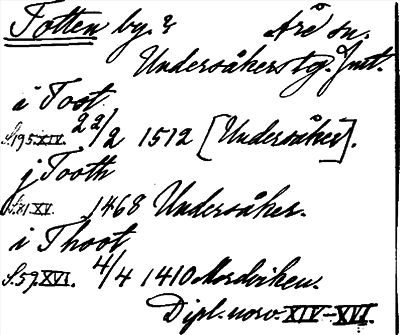 Totten by. Åre sn.
Undersåkers tg. Jmt.
i Toot
S. 195. XIV. 22/2 1512 [Undersåker].
j Tooth
S. 21. XV. 1468 Undersåker.
i Thoot
S. 59. XVI. 4/4 1410 Mordviken.
Dipl. norv. XIV-XVI.